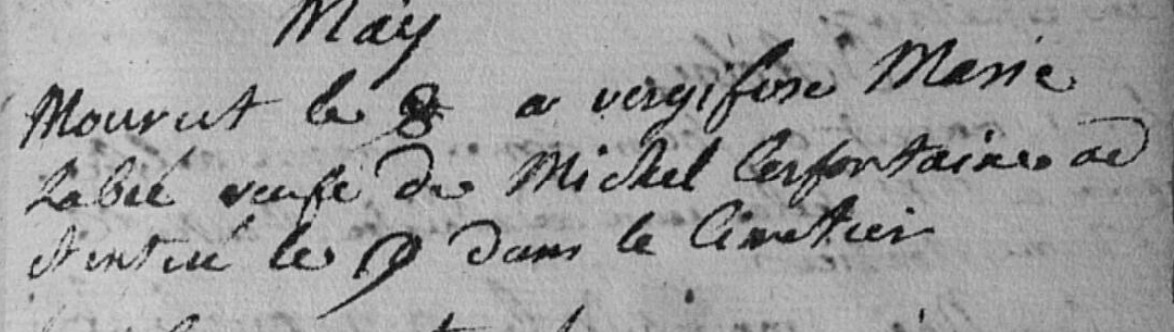 May
Mourut le 8 a vergifose Marie
Labeé veufe de Michel Cerfontaine ad
et entere le 9 dans le Cimetier